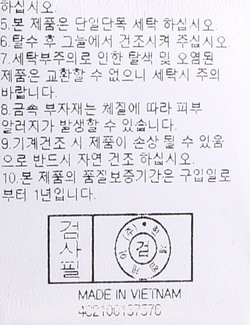 하십시오.
5.본 제품은 단일단독 세탁 하십시오
6.탈수 후 그늘에서 건조시켜 주십시오.
7.세탁부주의로 인한 탈색 및 오염된
제품은 교환할 수 없으니 세탁시 주의
바랍니다.
8.금속 부자재는 체질에 따라 피부
알러지가 발생할 수 있습니다.
9.기계건조 시 제품이 손상 될 수 있음
으로 반드시 자연 건조 하십시오.
10.본 제품의 품질보증기간은 구입일로
부터 1년입니다.
검사필
검
MADE IN VIETNAM